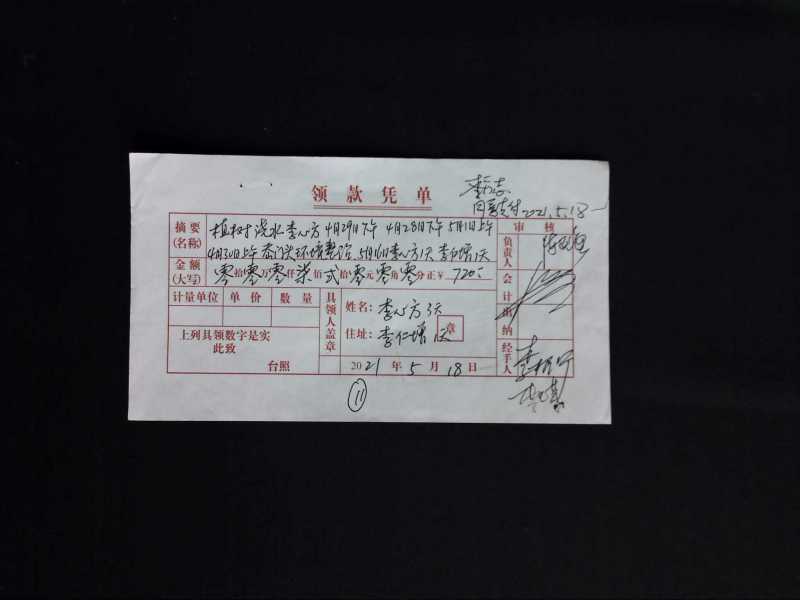 领款凭单
同意支付2021.5.18
摘要
(名称)
植树浇水李心方4月29日下午 4月28日下午 5月1日上午
4月30日上午 环境整治、5月16日李心方1天 李仁增1天
审核
金额
(大写)
零拾零万零仟柒佰贰拾零元零角零分正¥ 720
负责人
会计
出纳
经手人
计量单位 单价 数量
具领人盖章
姓名: 李心方3天
住址: 李仁增1天
章
上列具领数字是实
此致
台照
2021年5月18日
11